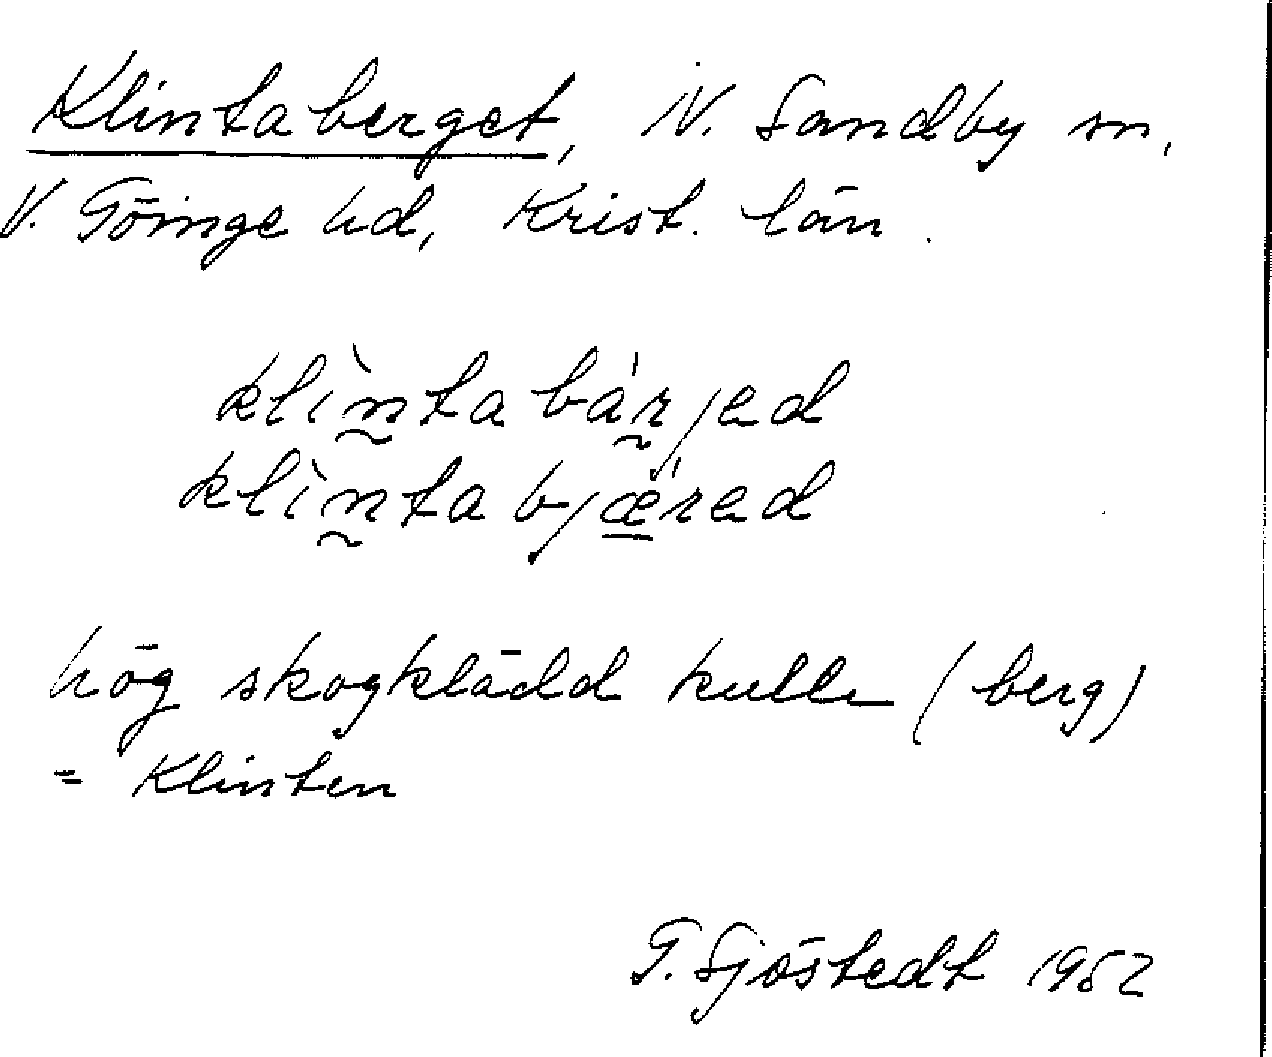 Klintaberget, N. Sandby sn,
V. Göinge hd, Krist. län.
klìn̰tabár̰jed
klìn̰tabjǽ̲red
hög skogklädd kulle (berg)
= Klinten
G. Sjöstedt 1952